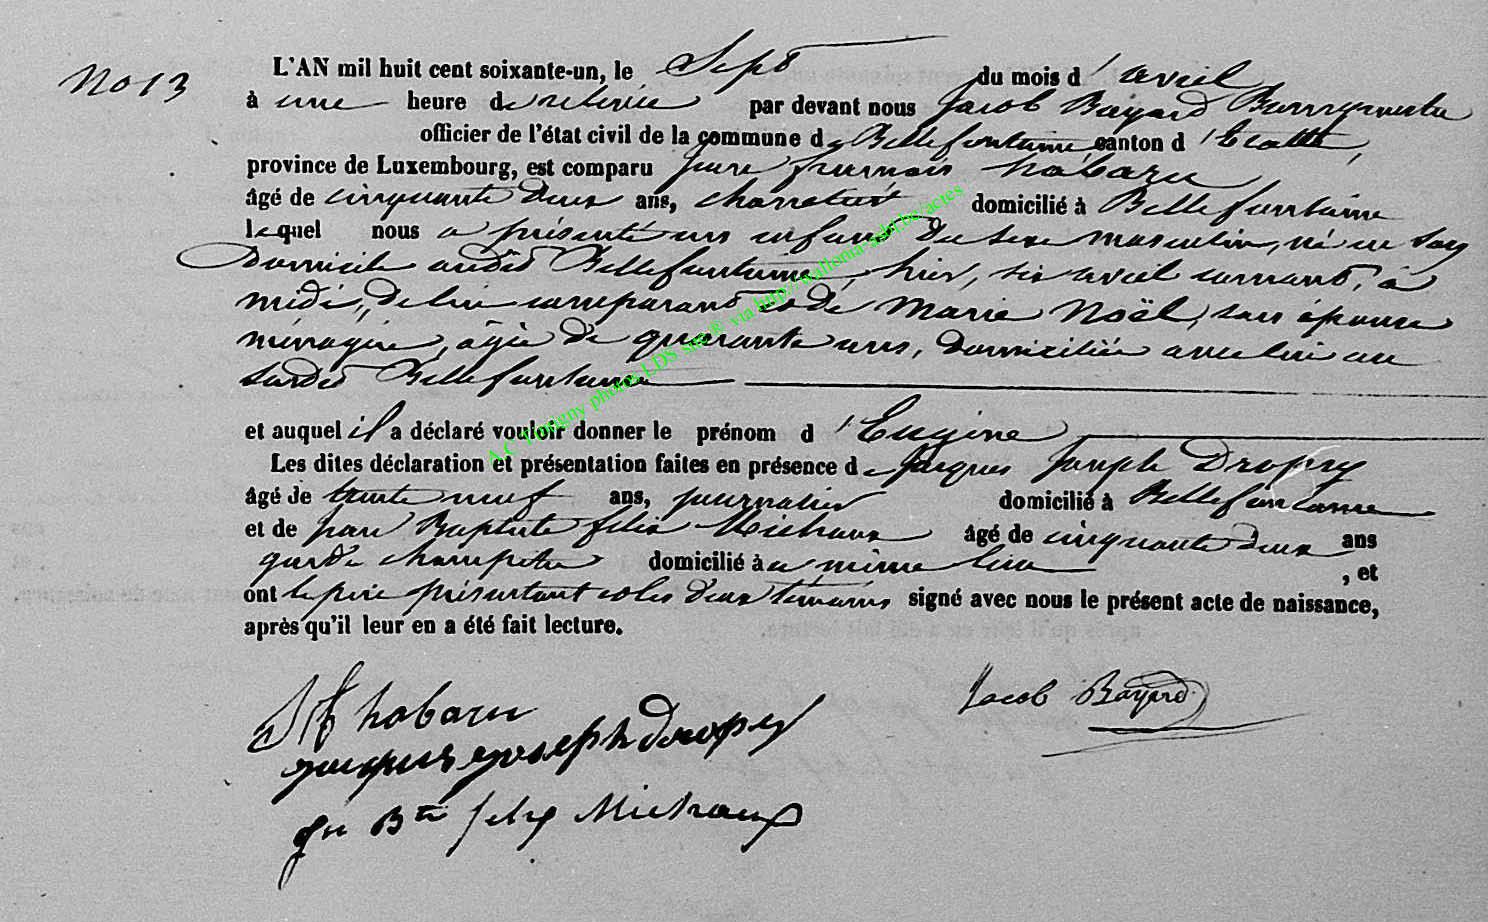 No 13
L'AN mil huit cent soixante-un, le Sept du mois d'avril
à une heure de relevée par devant nous Jacob Bayard Bourgmestre
officier de l'état civil de la commune de Bellefontaine canton d'Etalle,
province de Luxembourg, est comparu Jean françois habaru
âgé de cinquante deux ans, domicilié à Bellefontaine
lequel nous a présenté un enfant du sexe masculin, né en son
Domicile audit Bellefontaine, hier, six avril courant, à
midi, de lui comparant et de Marie Noël, son épouse
ménagère, âgée de quarante ans, domiciliée avec lui au
susdit Bellefontaine
et auquel il a déclaré vouloir donner le prénom d'Eugène
Les dites déclaration et présentation faites en présence de Jacques Joseph Dropsy
âgé de trente neuf ans, journalier domicilié à Bellefontaine
et de jean Baptiste félix Michaux âgé de cinquante deux ans
garde champêtre domicilié à au même lieu, et
ont le père présentant et les deux témoins signé avec nous le présent acte de naissance,
après qu'il leur en a été fait lecture.
habaru Jacob Bayard
jacques joseph dropsy
jn Bte felix Michaux
A.C Tintigny photos LDS sur ® via http://wallonia-asbl.be/actes